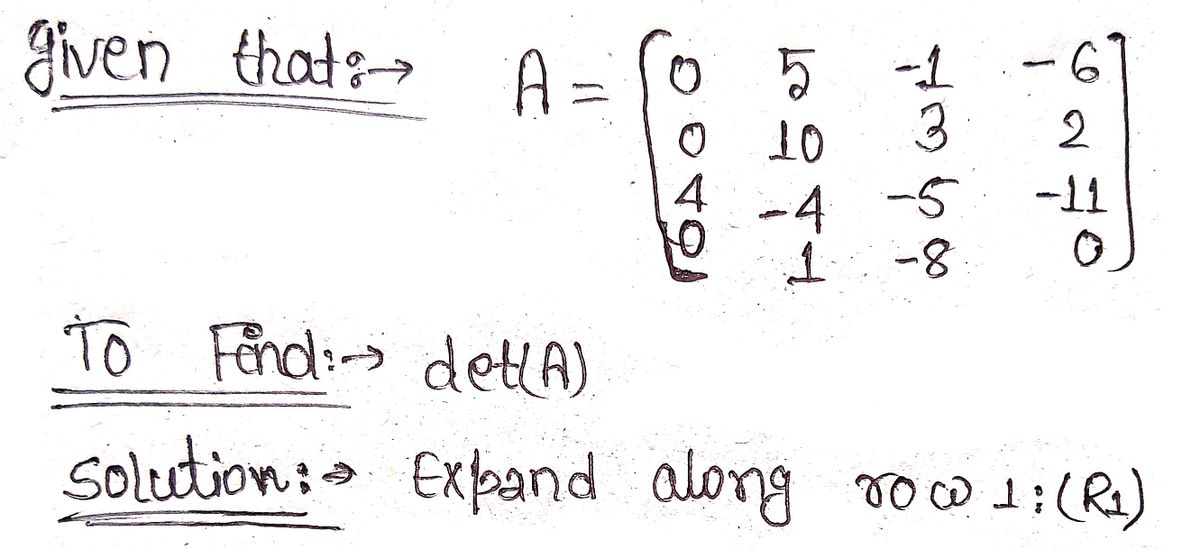 given that:→ A = [0 5 -1 -6
0 10 3 2
4 -4 -5 -11
0 1 -8 0]
To Find:→ det(A)
Solution:→ Expand along row 1:(R1)